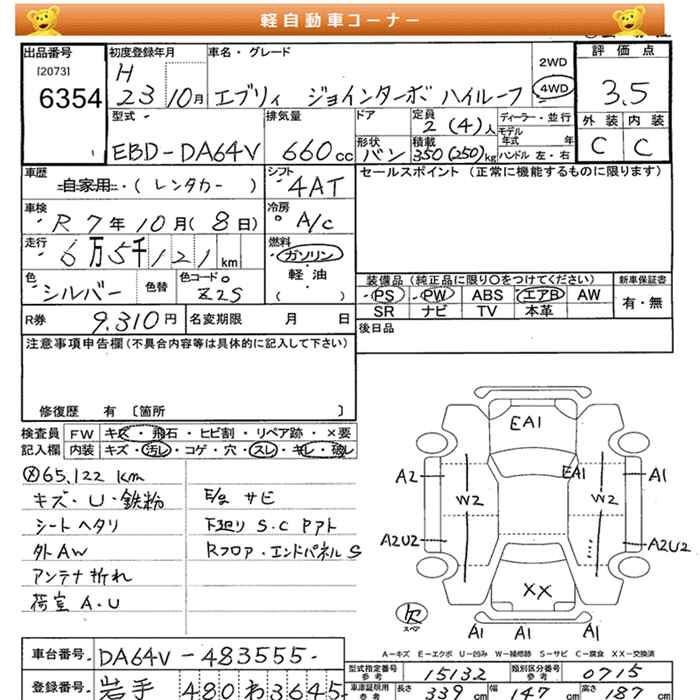 軽自動車コーナー
出品番号 初度登録年月 車名・グレード 評価点
[2073] 6354
H 23 10月 エブリィ ジョインターボ ハイルーフ 2WD 4WD 3.5
型式 排気量 ドア 定員 2 (4) 人 ディーラー・並行 外装 内装
EBD-DA64V 660cc 形状 バン 積載 350 (250) kg モデル年式 年 ハンドル 左・右 C C
車歴 自家用・(レンタカー) シフト 4AT セールスポイント (正常に機能するものに限ります)
車検 R 7年 10月(8日) 冷房 A/C
走行 6万5千121km 燃料 ガソリン
軽・油
( )
色 シルバー 色替 色コード Z2S 装備品 (純正品に限り○をつけてください) 新車保証書
PS PW ABS エアB AW 有・無
SR ナビ TV 本革
R券 9,310円 名変期限 月 日 後日品
注意事項申告欄(不具合内容等は具体的に記入して下さい)
修復歴 有 〔箇所 〕
検査員 FW キズ・飛石・ヒビ割・リペア跡・×要
記入欄 内装 キズ・汚レ・コゲ・穴・スレ・キレ・破レ
65,122 km
キズ・U・鉄粉 E/g サビ
シートヘタリ 下廻り S.C Pアト
外AW Rフロア・エンドパネルS
アンテナ折れ
荷室 A.U
EA1
A2 EA1 A1
W2 W2
A2U2 A2U2
XX
欠 スペア
A1 A1 A1
A−キズ E−エクボ U−凹み W−補修跡 S−サビ C−腐食 XX−交換済
車台番号 DA64V-483555 型式指定番号 参考 15132 類別区分番号 参考 0715
登録番号 岩手 480 わ 3645 車庫証明用 参考 長さ 339 cm 幅 147 cm 高さ 187 cm